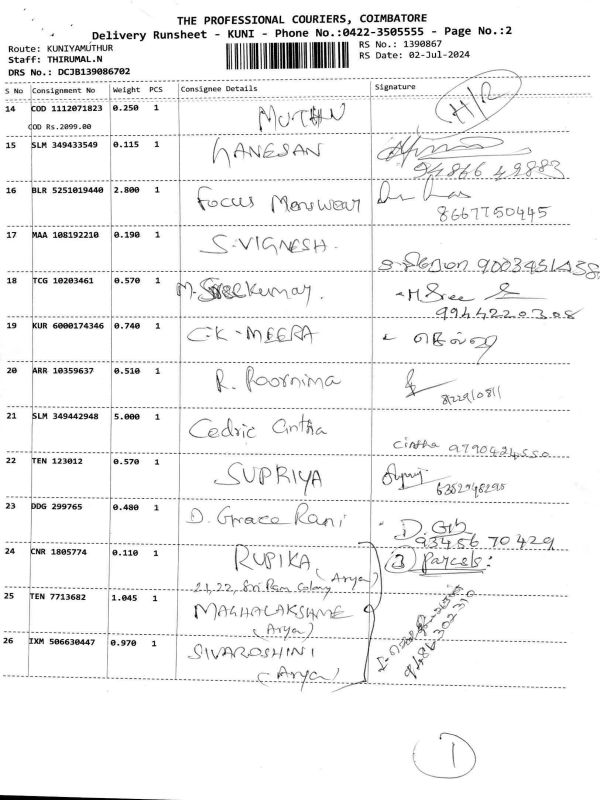 THE PROFESSIONAL COURIERS, COIMBATORE
Delivery Runsheet - KUNI - Phone No.:0422-3505555 - Page No.:2
Route: KUNIYAMUTHUR
Staff: THIRUMAL.N
DRS No.: DCJB139086702
RS No.: 1390867
RS Date: 02-Jul-2024
S No Consignment No Weight PCS Consignee Details Signature
14 COD 1112071823 0.250 1 MUTHU H/R
COD Rs.2099.00
15 SLM 349433549 0.115 1 GANESAN
94866 49883
16 BLR 5251019440 2.800 1 Focus Menswear
8667750445
17 MAA 108192210 0.190 1 S.VIGNESH.
18 TCG 10203461 0.570 1 M.Sreekumar. M Sree
9944220308
19 KUR 6000174346 0.740 1 C.K-MEERA
20 ARR 10359637 0.510 1 R. Poornima
21 SLM 349442948 5.000 1 Cedric Cintha
Cintha 9790424550
22 TEN 123012 0.570 1 SUPRIYA
6382948295
23 DDG 299765 0.480 1 D. Grace Rani D.
93456 70429
24 CNR 1805774 0.110 1 RUPIKA (Arya) (3) parcels:
21,22, Sri Ram Colony
25 TEN 7713682 1.045 1 MAGHALAKSHME
(Arya)
26 IXM 506630447 0.970 1 SIVAROSHINI
(Arya)
9486302310
1